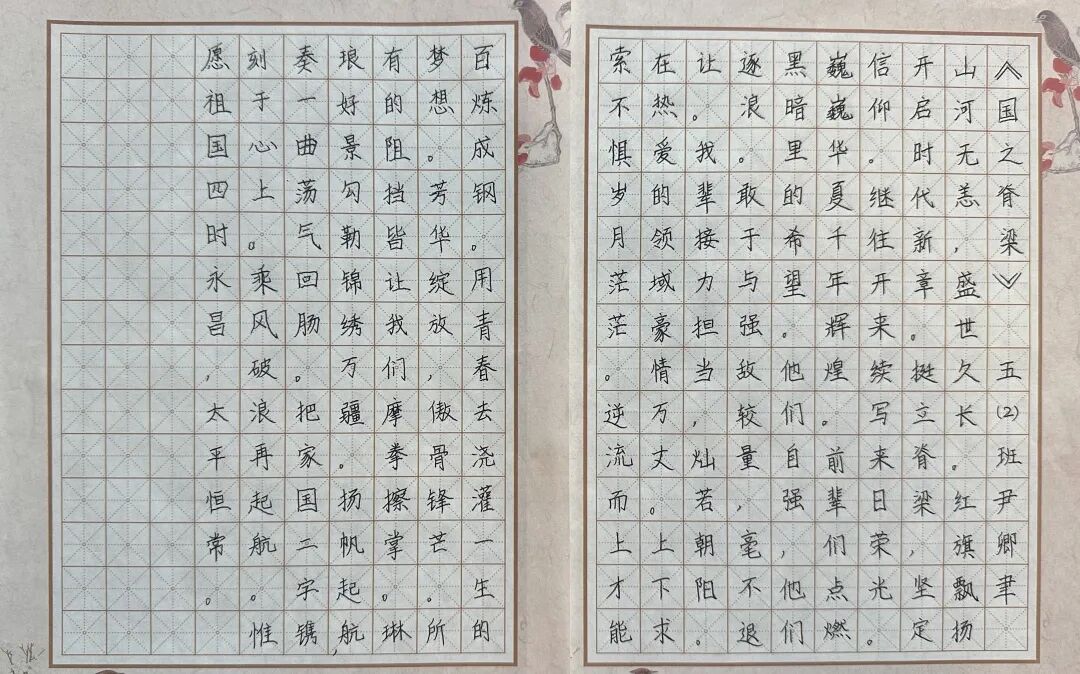 《国之脊梁》 五(2)班尹卿聿
山河无恙，盛世久长。红旗飘扬
开启时代新章。挺立脊梁，坚定
信仰。继往开来续写来日荣光。
巍巍华夏千年辉煌。前辈们点燃
黑暗里的希望。他们自强，他们
逐浪。敢于与强敌较量，毫不退
让。我辈接力担当，灿若朝阳。
在热爱的领域豪情万丈。上下求
索不惧岁月茫茫。逆流而上才能
百炼成钢。用青春去浇灌一生的
梦想。芳华绽放，傲骨锋芒。所
有的阻挡皆让我们摩拳擦掌。琳
琅好景勾勒锦绣万疆。扬帆起航，
奏一曲荡气回肠。把家国二字镌
刻于心上。乘风破浪再起航。惟
愿祖国四时永昌，太平恒常。